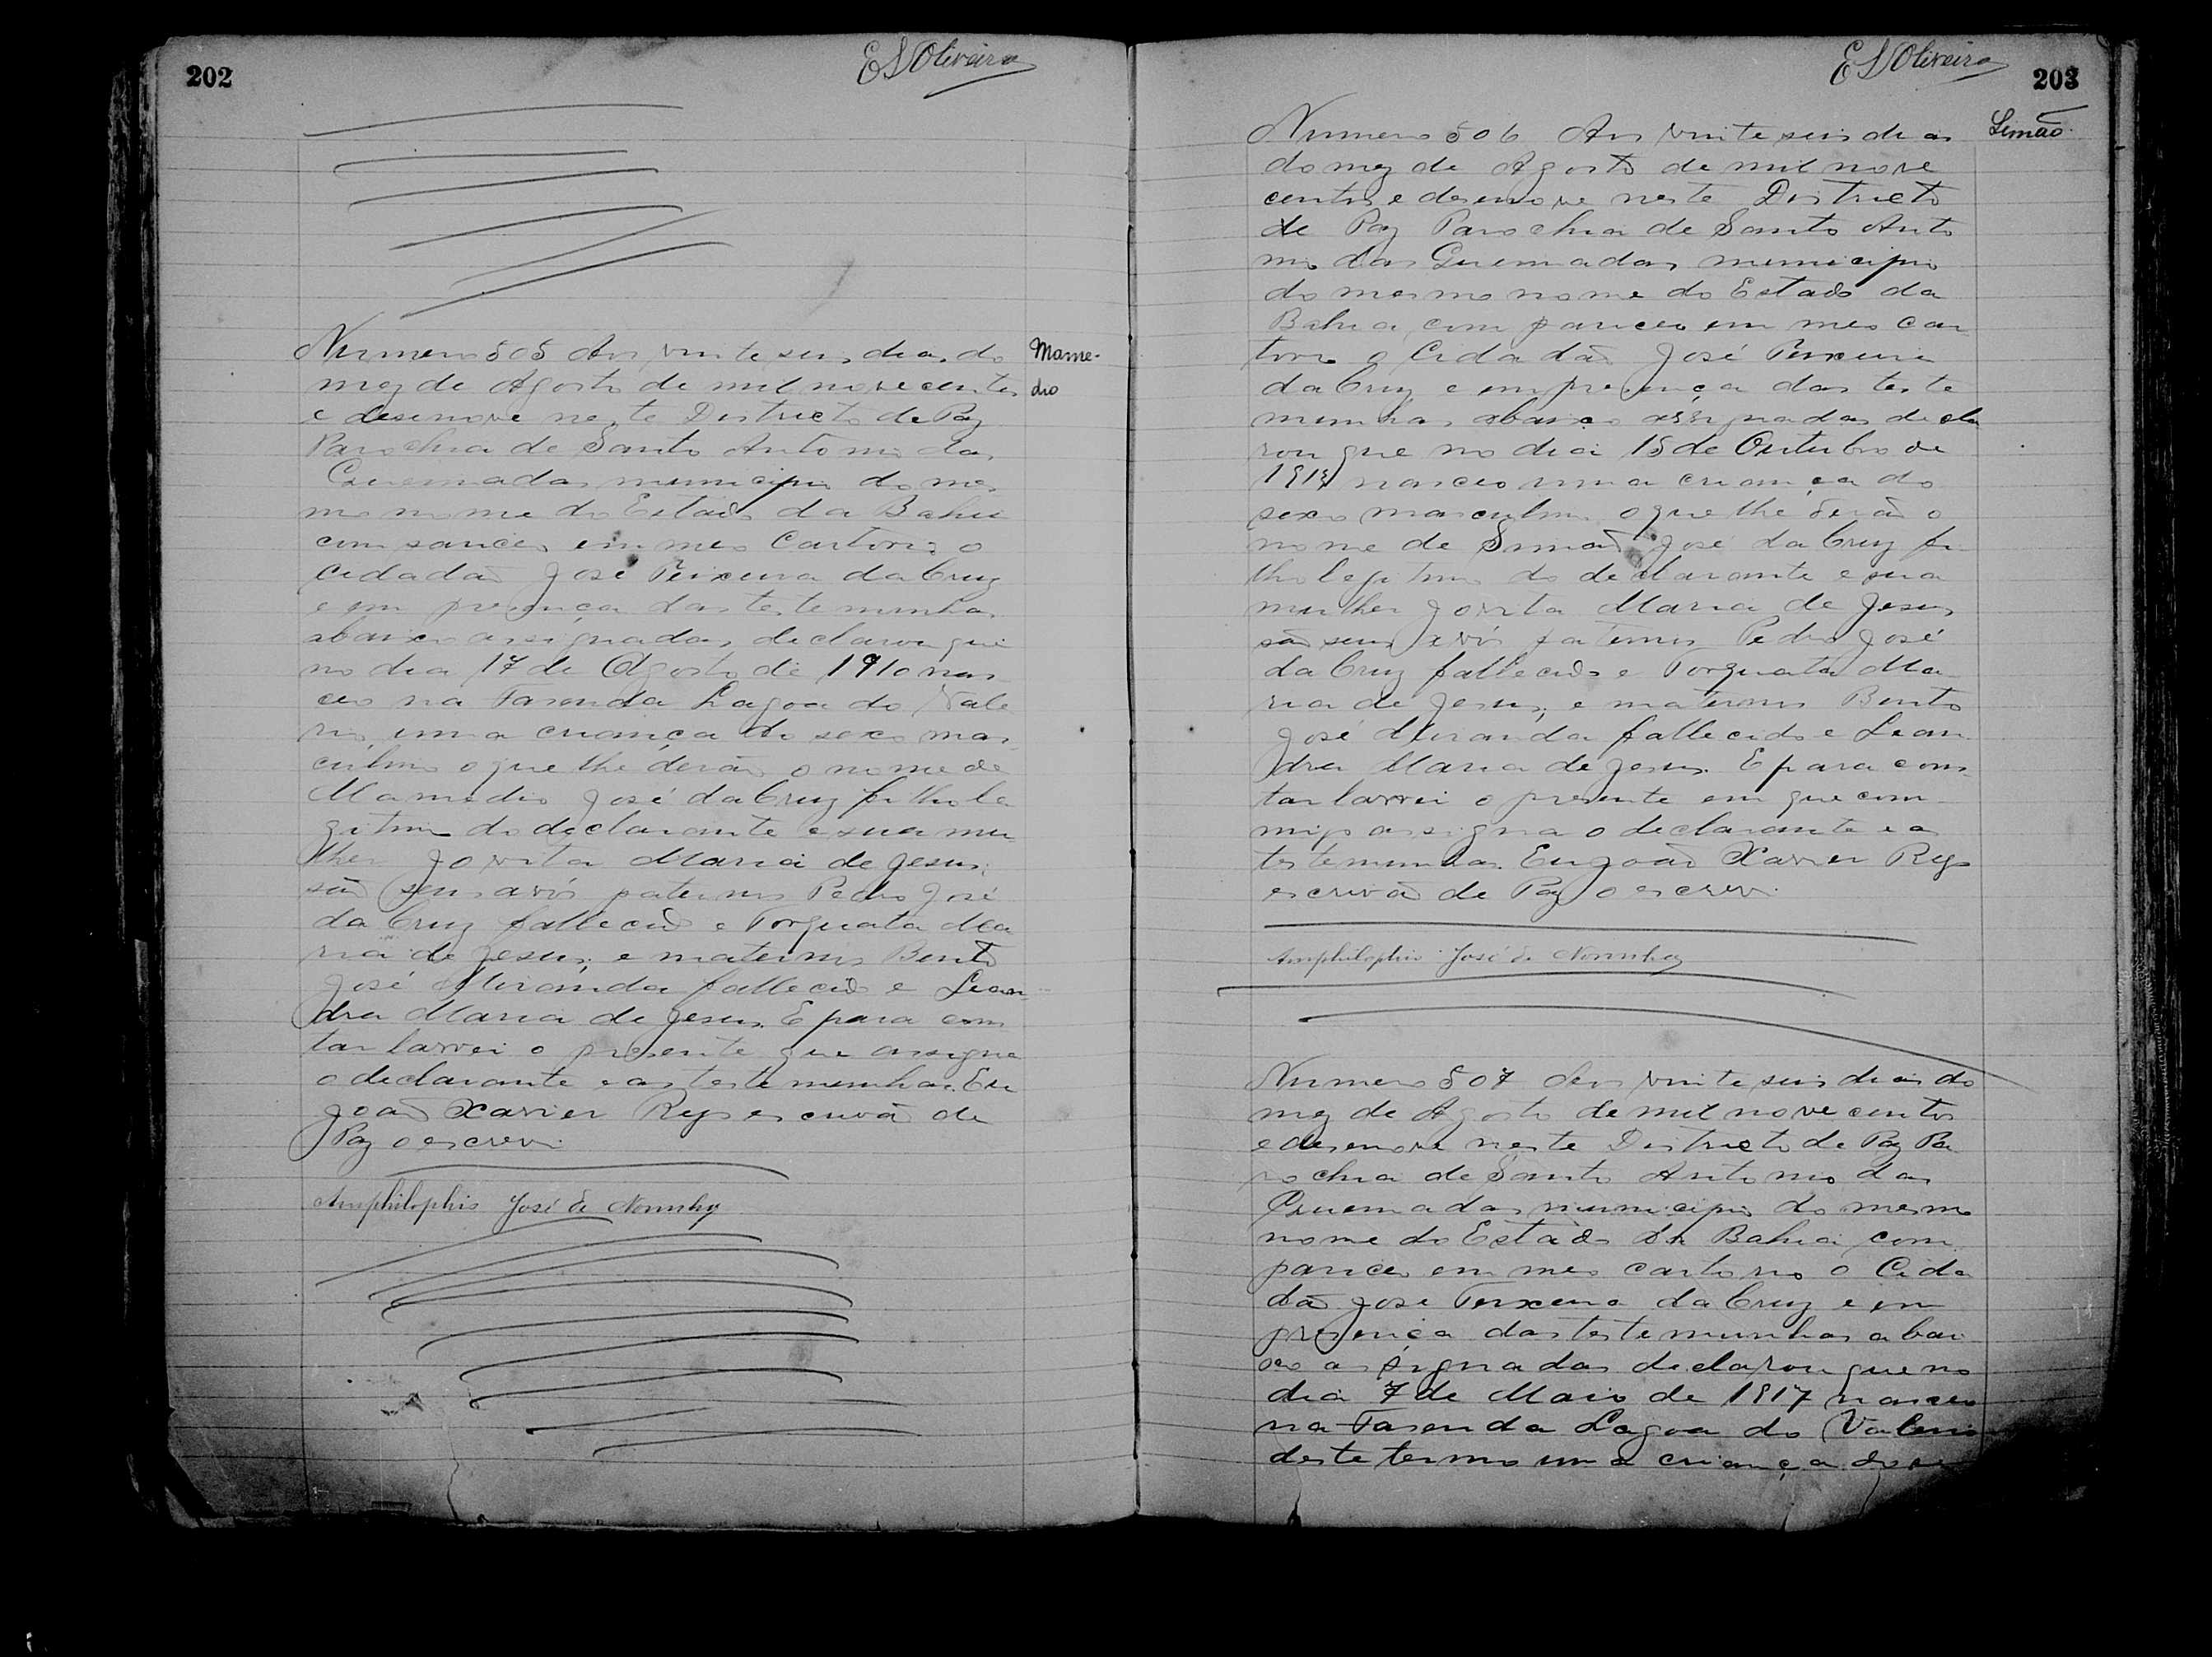 202
E S Oliveira
Numero 505 Aos vinte seis dias do
mez de Agosto de mil novecentos
e desenove neste Districto de Paz
Parochia de Santo Antonio das
Queimadas municipio do mes
mo nome do Estado da Bahia
com pareceo em meo Cartorio o
Cidadão José Teixeira da Cruz
e em presença das testemunhas
abaixo assignadas, declarou que
no dia 17 de Agosto de 1910 nas
ceo na Fasenda Lagoa do Vale
rio, uma criança do sexo mas
culino o que lhe derão o nome de
Mamedio José da Cruz filho le
gitimo do declarante e sua mu
lher Jovita Maria de Jesus;
são seus avós paternos Pedro José
da Cruz fallecido e Torquata Ma
ria de Jesus; e maternos Bento
José Miranda fallecido e Lean
dra Maria de Jesus. E para cons
tar lavrei o presente que assigna
o declarante e as testemunhas. Eu
João Xavier Reys escrivão de
Paz o escrevi.
Amphilophio José de Noronha
Mame-
dio
E S Oliveira
203
Numero 506 Aos vinte seis dias
do mez de Agosto de mil nove
centos e desenove neste Districto
de Paz Parochia de Santo Anto
nio das Queimadas municipio
do mesmo nome do Estado da
Bahia, com pareceo em meo Car
torio o Cidadão José Teixeira
da Cruz e em presença das teste
munhas abaixo assignadas decla
rou que no dia 15 de Outubro de
nasceo uma criança do
sexo masculino o que lhe derão o
nome de Simão José da Cruz fi
lho legitimo do declarante e sua
mulher Jovita Maria de Jesus
são seus avós paternos Pedro José
da Cruz fallecido e Torquata Ma
ria de Jesus; e maternos Bento
José Miranda fallecido e Lean
dra Maria de Jesus. E para cons
tar lavrei o presente em que com
migo assigna o declarante e as
testemunhas. Eu João Xavier Reys
escrivão de Paz o escrevi.
Amphilophio José de Noronha
Simão
Numero 507 Aos vinte seis dias do
mez de Agosto de mil novecentos
e desenove neste Districto de Paz Pa
rochia de Santo Antonio das
Queimadas municipio do mesmo
nome do Estado da Bahia com
pareceo em meo cartorio o Cida
dão José Teixeira da Cruz e em
presença das testemunhas abai
xo assignadas declarou que no
dia 7 de Maio de 1917 nasceo
na Fasenda Lagoa do Valerio
deste termo uma criança do se